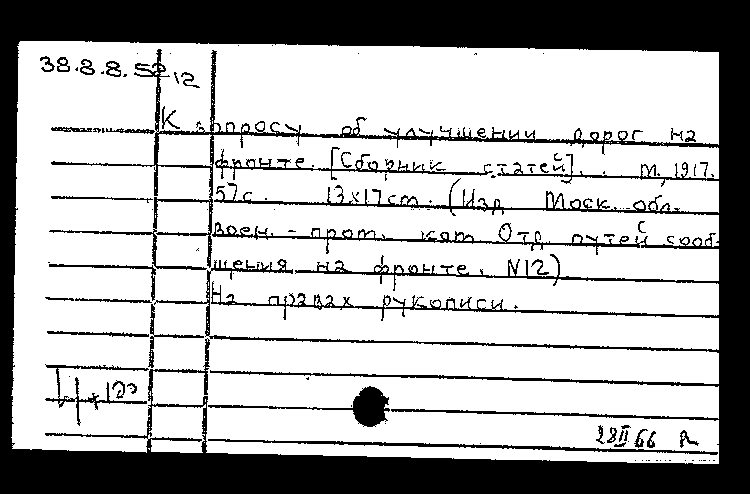 38.8.8.52 12
К вопросу об улучшении дорог на
фронте. [Сборник статей]. М., 1917.
57с. 13х17cm. (Изд. Моск. обл.
воен.-пром. ком Отд путей сооб-
щения на фронте. N12)
На правах рукописи.
28 II 66